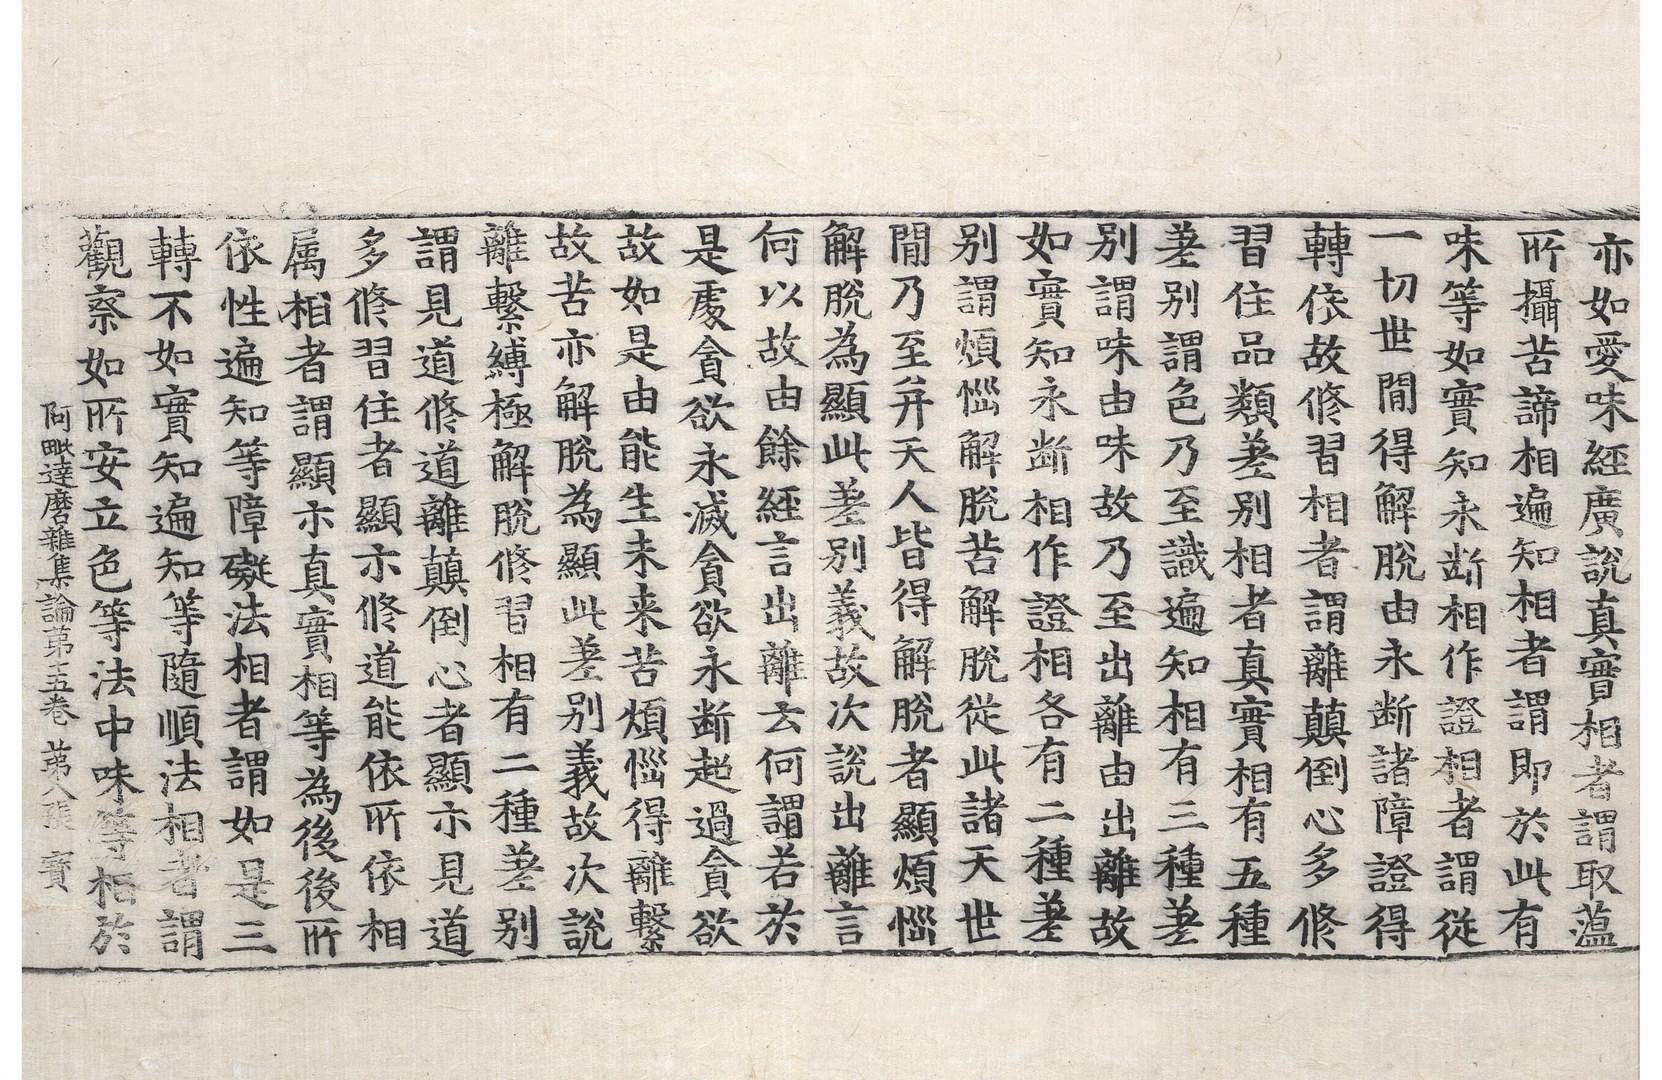 亦如愛味經廣說真實相者謂取蘊
所攝苦諦相遍知相者謂即於此有
味等如實知永断相作證相者謂從
一切世間得解脫由永断諸障證得
轉依故修習相者謂離顛倒心多修
習住品類差別相者真實相有五種
差別謂色乃至識遍知相有三種差
別謂味由味故乃至出離由出離故
如實知永断相作證相各有二種差
別謂煩惱解脫苦解脫從此諸天世
間乃至并天人皆得解脫者顯煩惱
解脫為顯此差別義故次說出離言
何以故由餘經言出離云何謂若於
是處貪欲永滅貪欲永断超過貪欲
故如是由能生未来苦煩惱得離繫
故苦亦解脫為顯此差別義故次說
離繫縛極解脫修習相有二種差別
謂見道修道離顛倒心者顯示見道
多修習住者顯示修道能依所依相
属相者謂顯示真實相等為後後所
依性遍知等障礙法相者謂如是三
轉不如實知遍知等隨順法相者謂
觀察如所安立色等法中味等相於
阿毗達磨雜集論第十五卷 第八張 寳